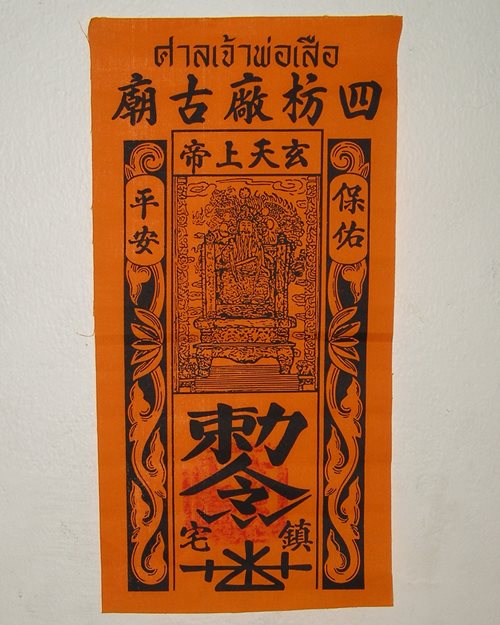 ศาลเจ้าพ่อเสือ
四枋廠古廟
玄天上帝
保佑
平安
勅令
鎮宅